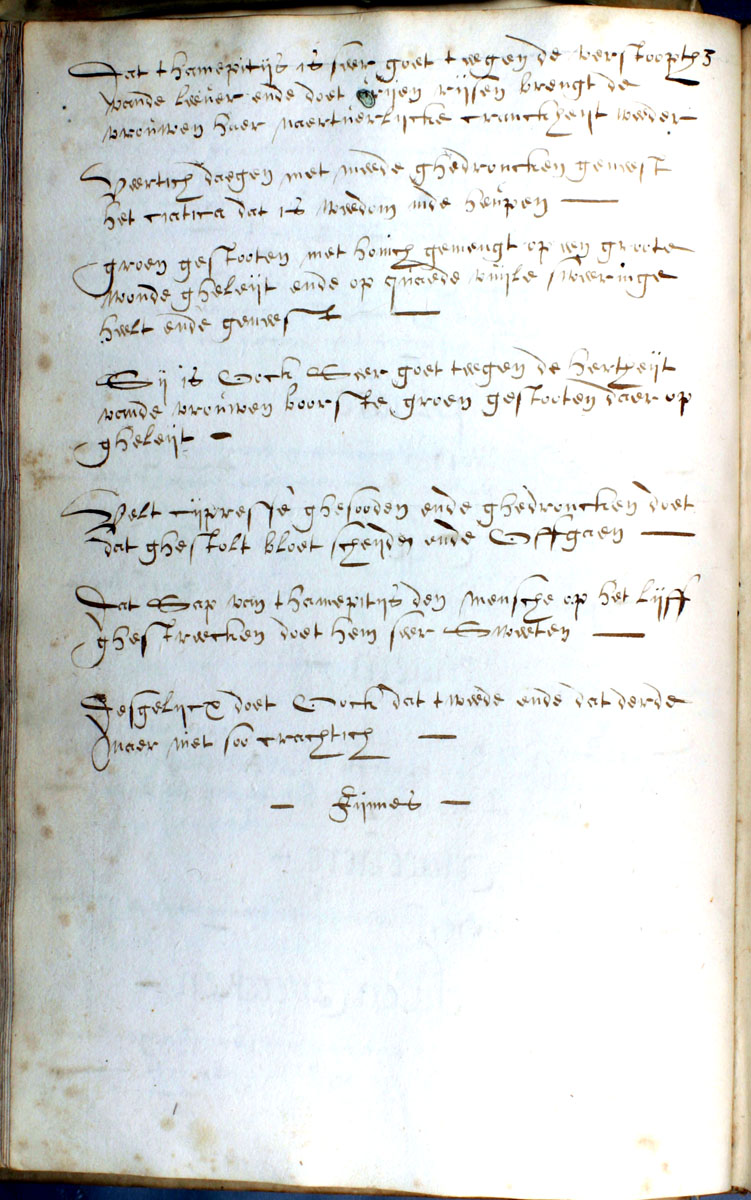 Dat thamepitijs is seer goet teegen de verstoopth
vande leever ende doet orijen rijsen brengt de
vrouwen haer naertuerlijcke cranckheijt weeder
Veertich daegen met meede ghedroncken geneest
het ciatica dat is weedom inde heupen —
groen gestooten met honich gemengt op een groote
wonde gheleijt ende op quaede vuijle sweeringe
heelt ende geneest —
Sij is Oock Seer goet teegen de hertheijt
vande vrouwen boorste groen gestooten daer op
gheleijt —
Velt cijpresse ghesooden ende ghedroncken doet
dat ghestolt bloet scheijden ende Offgaen —
Dat Sap van thamepitijs den mensche op het lijff
ghestreecken doet hem seer Sweeten —
Desgelijcx doet Oock dat tweede ende dat derde
maer niet soo crachtich —
— Fijnnes —